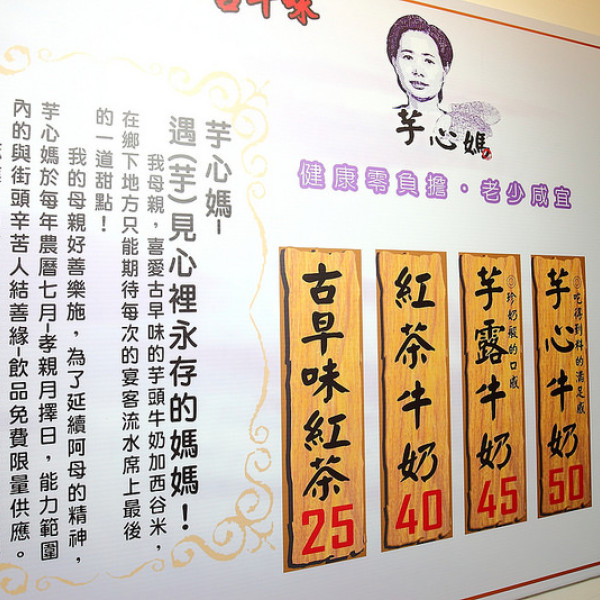 古早味
芋心媽
健康零負擔・老少咸宜
芋心媽-
遇(芋)見心裡永存的媽媽！
我母親，喜愛古早味的芋頭牛奶加西谷米，
在鄉下地方只能期待每次的宴客流水席上最後
的一道甜點！
我的母親好善樂施，為了延續阿母的精神，
芋心媽於每年農曆七月-孝親月擇日，能力範圍
內的與街頭辛苦人結善緣-飲品免費限量供應。
芋心牛奶
◎吃得到料的滿足感
50
芋露牛奶
◎珍奶般的口感
45
紅茶牛奶
40
古早味紅茶
25